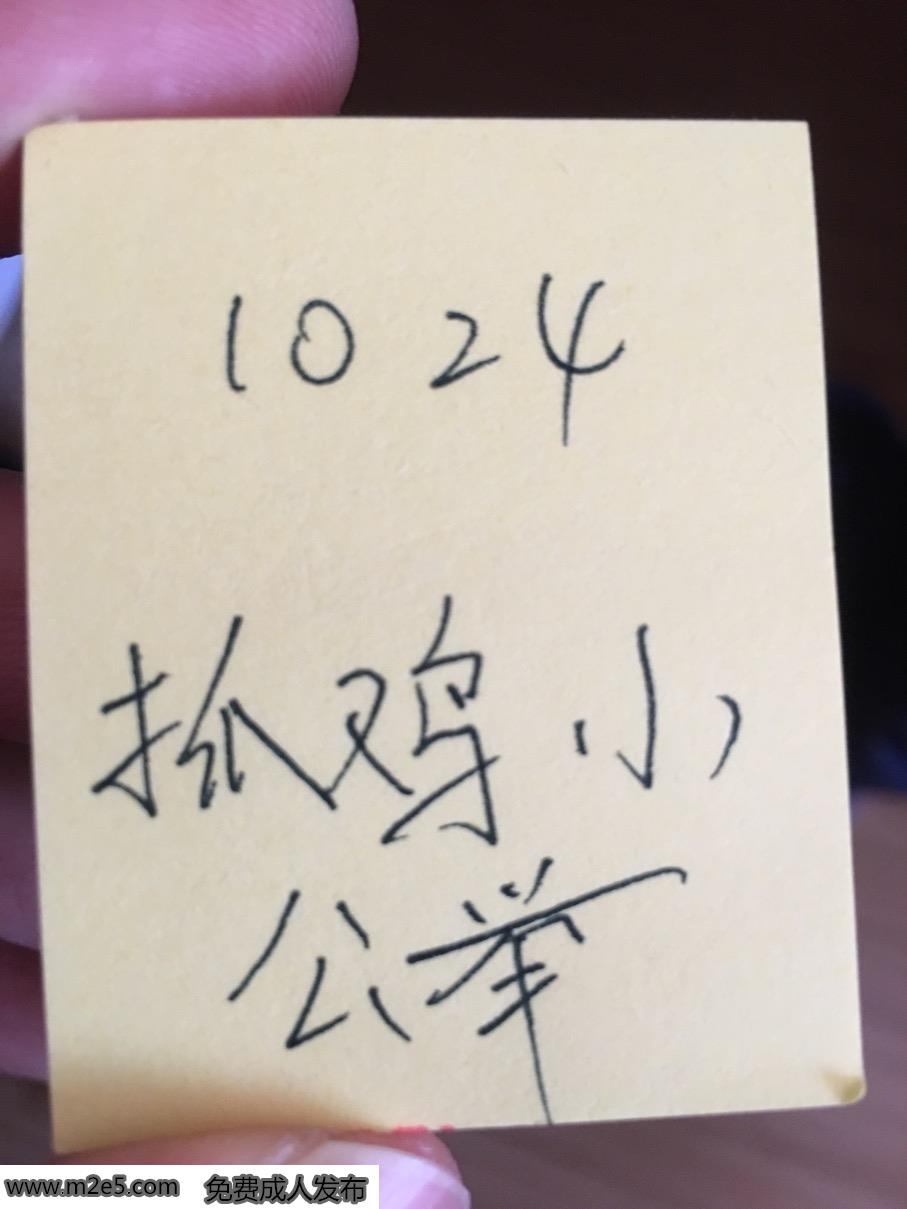 1024
抓鸡小
公举
www.m2e5.com 免费成人发布